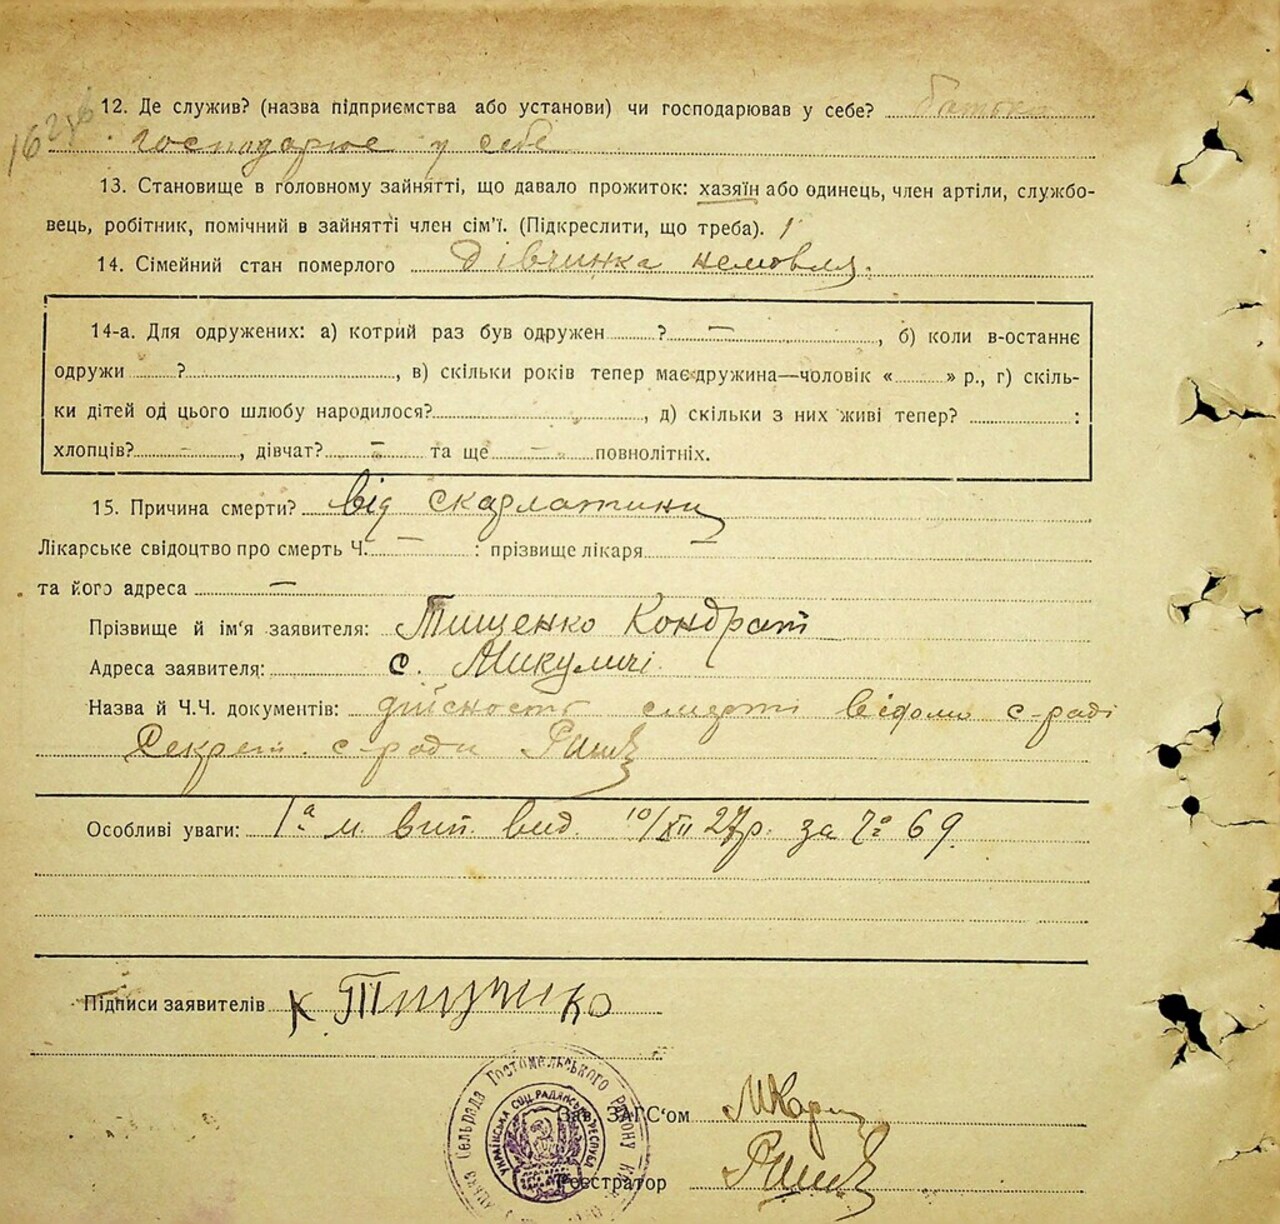 12. Де служив? (назва підприємства або установи) чи господарював у себе? батько
господарює у себе
13. Становище в головному зайнятті, що давало прожиток: хазяїн або одинець, член артіли, службо-
вець, робітник, помічний в зайнятті член сім'ї. (Підкреслити, що треба). 1
14. Сімейний стан померлого дівчинка немовля.
14-а. Для одружених: а) котрий раз був одружен ? —, б) коли в-останнє
одружи ? , в) скільки років тепер має дружина—чоловік « » р., г) скіль-
ки дітей од цього шлюбу народилося? , д) скільки з них живі тепер? :
хлопців? – , дівчат? – та ще – повнолітніх.
15. Причина смерти? від скарлатини
Лікарське свідоцтво про смерть Ч. — : прізвище лікаря —
та його адреса —
Прізвище й ім'я заявителя: Тищенко Кондрат
Адреса заявителя: с. Микуличі.
Назва й Ч.Ч. документів: дійсность смерті відома с-раді
Секрет. с-ради
Особливі уваги: 1а м. вип. вид. 10/XII 27р. за № 69.
Підписи заявителів К Тищенко
Зав. ЗАГС'ом
Реєстратор
Сельрада Гостомельського Району
УКРАЇНСЬКА СОЦ. РАДЯНСЬКА РЕСПУБ